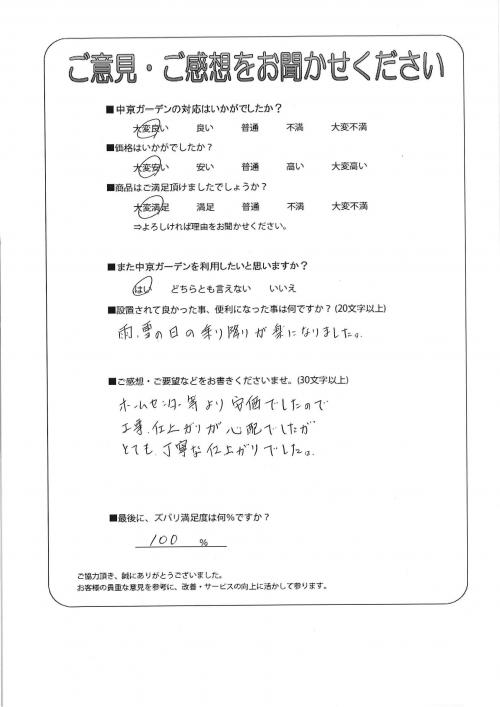 ご意見・ご感想をお聞かせください
■中京ガーデンの対応はいかがでしたか？
大変良い 良い 普通 不満 大変不満
■価格はいかがでしたか？
大変安い 安い 普通 高い 大変高い
■商品はご満足頂けましたでしょうか？
大変満足 満足 普通 不満 大変不満
⇒よろしければ理由をお聞かせください。
■また中京ガーデンを利用したいと思いますか？
はい どちらとも言えない いいえ
■設置されて良かった事、便利になった事は何ですか？(20文字以上)
雨、雪の日の乗り降りが楽になりました。
■ご感想・ご要望などをお書きくださいませ。(30文字以上)
ホームセンター等より安価でしたので
工事、仕上がりが心配でしたが
とても、丁寧な仕上がりでした。
■最後に、ズバリ満足度は何％ですか？
100 ％
ご協力頂き、誠にありがとうございました。
お客様の貴重な意見を参考に、改善・サービスの向上に活かして参ります。